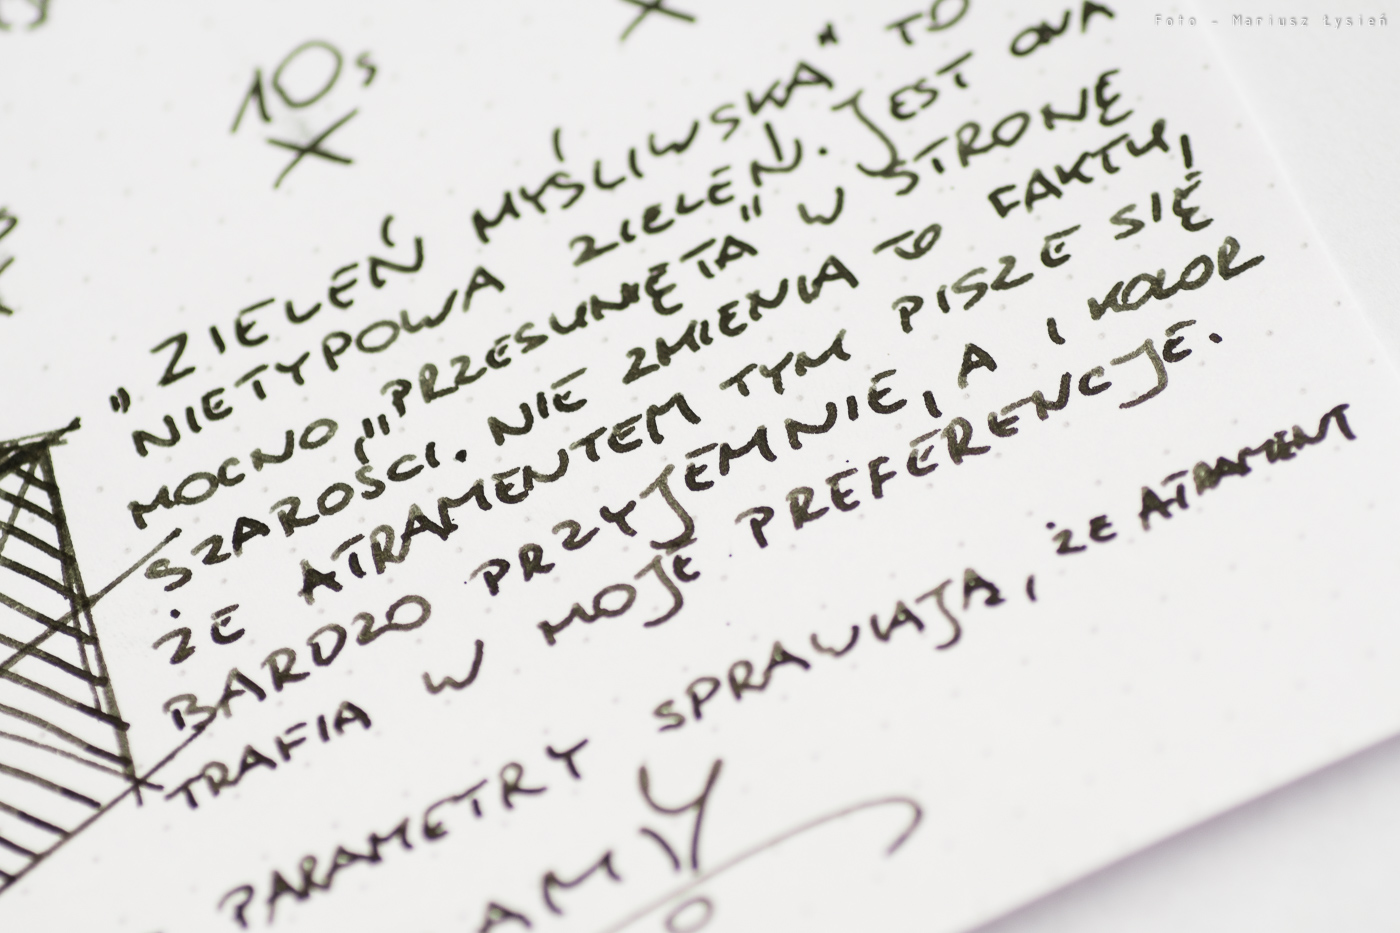 Foto - Mariusz Łysień
10s
"ZIELEŃ MYŚLIWSKA" TO
NIETYPOWA ZIELEŃ. JEST ONA
MOCNO „PRZESUNIĘTA" W STRONĘ
SZAROŚCI. NIE ZMIENIA TO FAKTU,
ŻE ATRAMENTEM TYM PISZE SIĘ
BARDZO PRZYJEMNIE, A I KOLOR
TRAFIA W MOJE PREFERENCJE.
PARAMETRY SPRAWIAJĄ, ŻE ATRAMENT